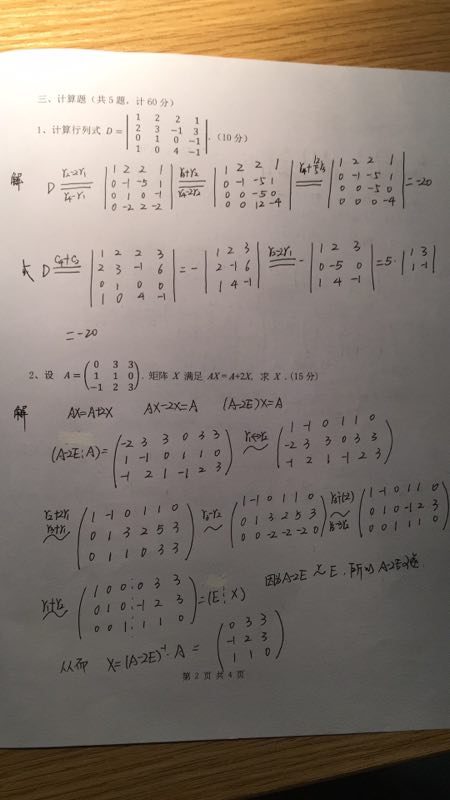 三、计算题（共5题，计60分）
1、计算行列式 D = | 1 2 2 1 ; 2 3 -1 3 ; 0 1 0 -1 ; 1 0 4 -1 | . (10分)
解
D =(r2-2r1, r4-r1)= | 1 2 2 1 ; 0 -1 -5 1 ; 0 1 0 -1 ; 0 -2 2 -2 | =(r3+r2, r4-2r2)= | 1 2 2 1 ; 0 -1 -5 1 ; 0 0 -5 0 ; 0 0 12 -4 | =(r4+12/5 r3)= | 1 2 2 1 ; 0 -1 -5 1 ; 0 0 -5 0 ; 0 0 0 -4 | = -20
D =(C4+C2)= | 1 2 2 3 ; 2 3 -1 6 ; 0 1 0 0 ; 1 0 4 -1 | = - | 1 2 3 ; 2 -1 6 ; 1 4 -1 | =(r2-2r1)= - | 1 2 3 ; 0 -5 0 ; 1 4 -1 | = 5· | 1 3 ; 1 -1 |
= -20
2、设 A = ( 0 3 3 ; 1 1 0 ; -1 2 3 ) . 矩阵 X 满足 AX = A+2X, 求 X . (15分)
解 AX=A+2X AX-2X=A (A-2E)X=A
(A-2E⋮A) = ( -2 3 3 0 3 3 ; 1 -1 0 1 1 0 ; -1 2 1 -1 2 3 ) ~(r1↔r2) ( 1 -1 0 1 1 0 ; -2 3 3 0 3 3 ; -1 2 1 -1 2 3 )
~(r2+2r1, r3+r1) ( 1 -1 0 1 1 0 ; 0 1 3 2 5 3 ; 0 1 1 0 3 3 ) ~(r3-r2) ( 1 -1 0 1 1 0 ; 0 1 3 2 5 3 ; 0 0 -2 -2 -2 0 ) ~(r3÷(-2), r2-3r3) ( 1 -1 0 1 1 0 ; 0 1 0 -1 2 3 ; 0 0 1 1 1 0 )
~(r1+r2) ( 1 0 0 ⋮ 0 3 3 ; 0 1 0 ⋮ -1 2 3 ; 0 0 1 ⋮ 1 1 0 ) = (E⋮X) 因为 A-2E ~r E, 所以 A-2E可逆.
从而 X=(A-2E)⁻¹·A = ( 0 3 3 ; -1 2 3 ; 1 1 0 )
第 2 页 共 4 页